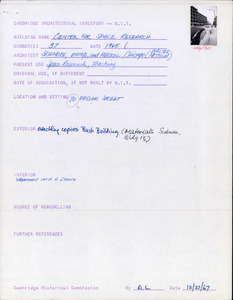 CAMBRIDGE ARCHITECTURAL INVENTORY - M.I.T.
BUILDING NAME CENTER FOR SPACE RESEARCH
NUMBER(S) 37 DATE 1965
ARCHITECT SKIDMORE, OWINGS, AND MERRILL (CHICAGO)
PRESENT USE SPACE RESEARCH, TEACHING
ORIGINAL USE, IF DIFFERENT
DATE OF ASSOCIATION, IF NOT BUILT BY M.I.T.
LOCATION AND SETTING 70 VASSAR STREET
EXTERIOR exactly copies Bush Building (Materials Science, Bldg 13)
INTERIOR
DEGREE OF REMODELLING
FURTHER REFERENCES
Cambridge Historical Commission By B.L. Date 12/27/67